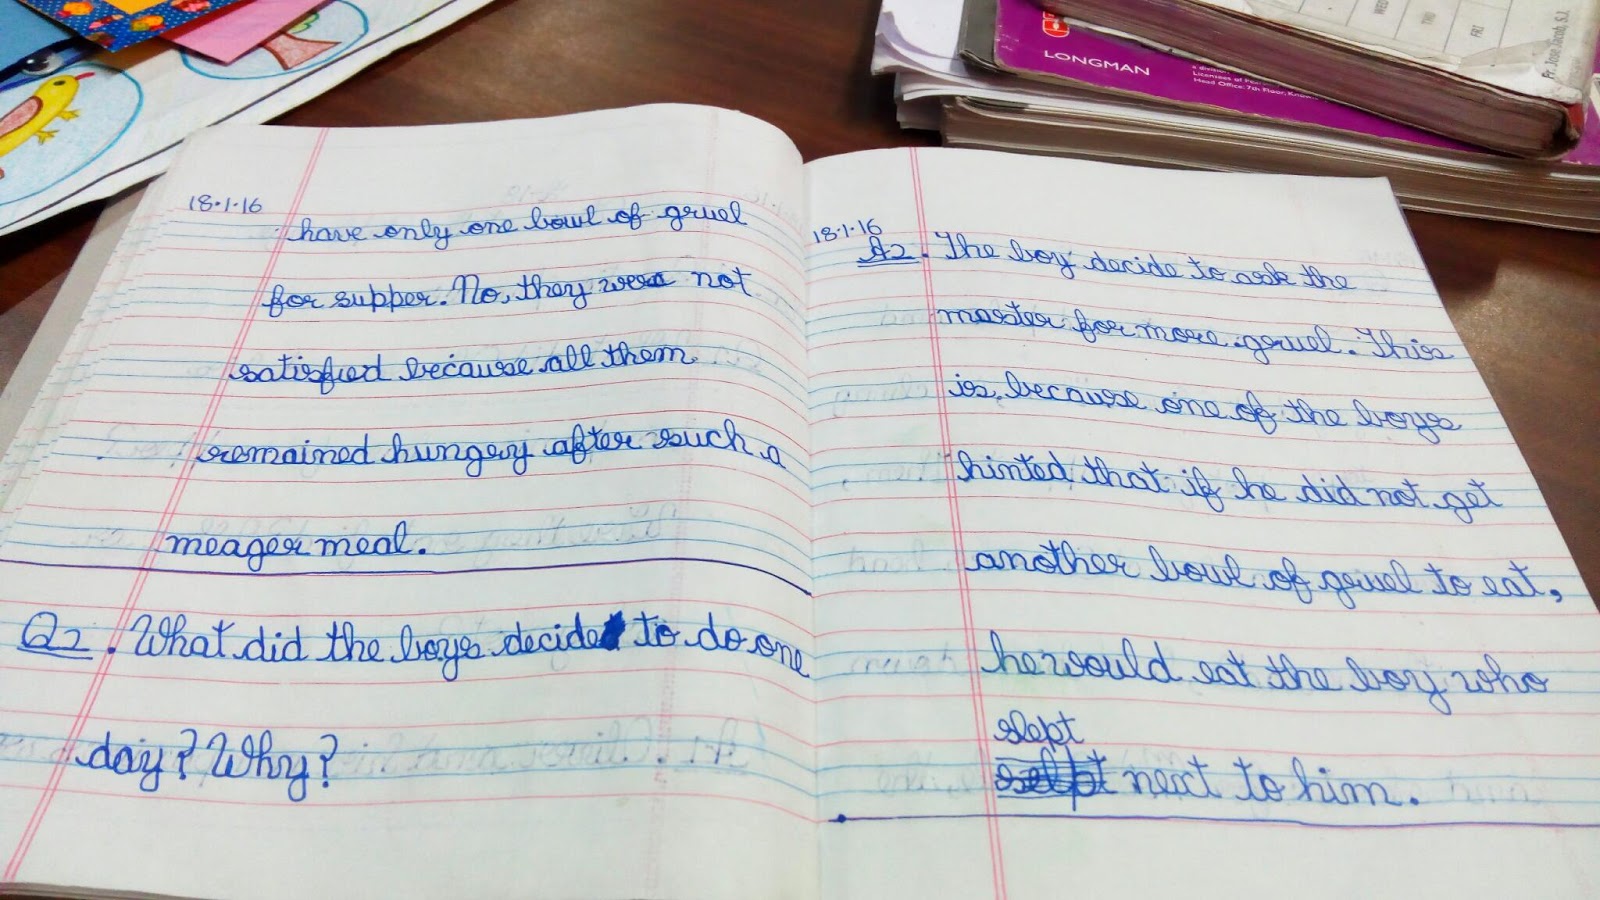 18.1.16
have only one bowl of gruel
for supper. No, they were not
satisfied because all them
remained hungery after such a
meager meal.
Q2. What did the boys decide to do one
day? Why?
18.1.16
A2. The boy decide to ask the
master for more gruel. This
is, because one of the boys
hinted that if he did not get
another bowl of gruel to eat,
he would eat the boy who
slept
selpt next to him.
LONGMAN
Head Office: 7th Floor,
WED
THU
FRI
Fr. Jose Jacob, S.J.